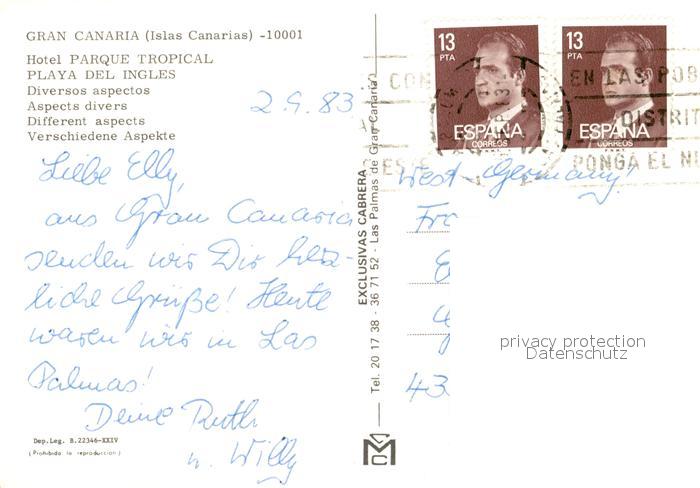 GRAN CANARIA (Islas Canarias) -10001
Hotel PARQUE TROPICAL
PLAYA DEL INGLES
Diversos aspectos
Aspects divers
Different aspects
Verschiedene Aspekte
2.9.83
Liebe Elly,
aus Gran Canaria
senden wir Dir herz-
liche Grüße! Heute
waren wir in Las
Palmas!
Deine Ruth
u. Willy
Dep.Leg. B.22346-XXIV
(Prohibida la reproduccion)
EXCLUSIVAS CABRERA
Tel. 20 17 38 - 36 71 52 - Las Palmas de Gran Canaria
13
PTA
ESPAÑA
CORREOS
13
PTA
ESPAÑA
CORREOS
CON
EN LAS POB
DISTRIT
PONGA EL N
West-Germany!
Fr
43
privacy protection
Datenschutz